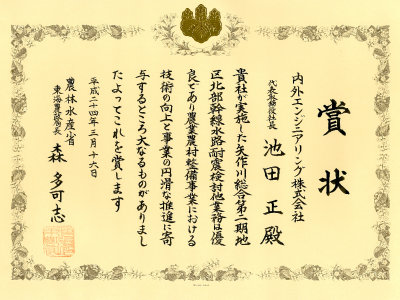 賞状
内外エンジニアリング株式会社
代表取締役社長 池田正殿
貴社が実施した矢作川総合第二期地
区北部幹線水路耐震検討他業務は優
良であり農業農村整備事業における
技術の向上と事業の円滑な推進に寄
与するところ大なるものがありまし
たよってこれを賞します
平成二十四年三月十六日
農林水産省
東海農政局長 森多可志